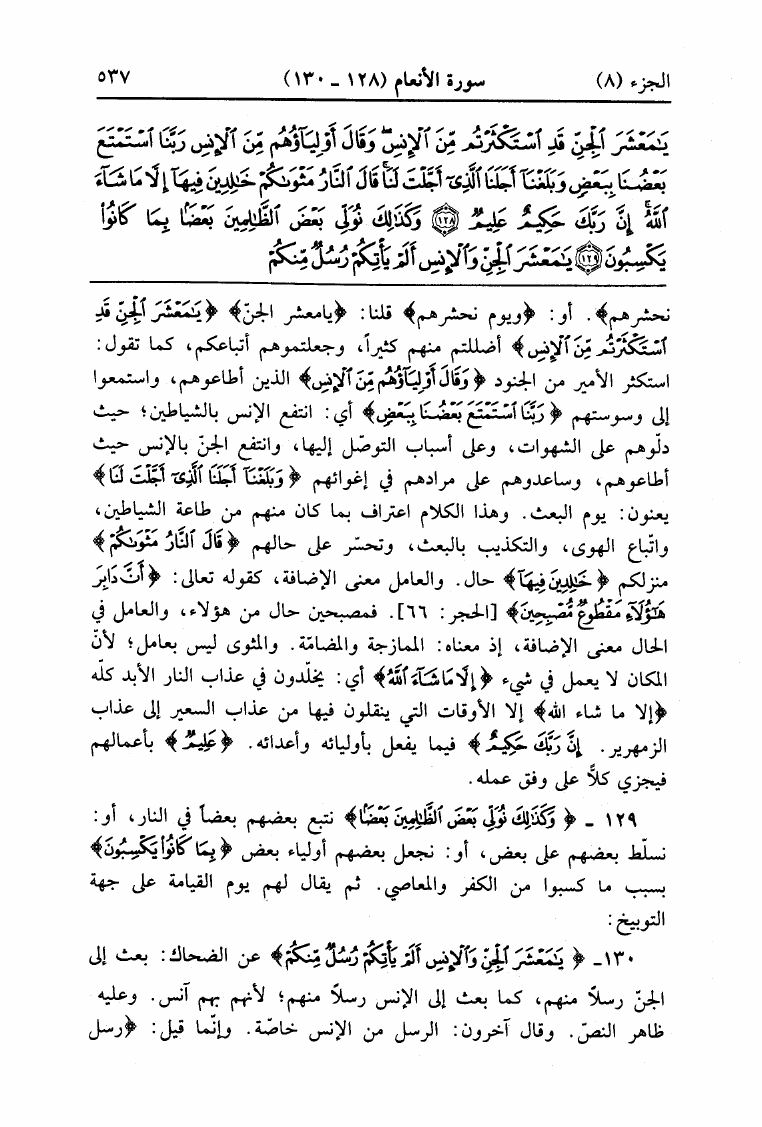 الجزء (٨) سورة الأنعام (١٢٨ ـ ١٣٠) ٥٣٧
يَٰمَعْشَرَ ٱلْجِنِّ قَدِ ٱسْتَكْثَرْتُم مِّنَ ٱلْإِنسِ وَقَالَ أَوْلِيَآؤُهُم مِّنَ ٱلْإِنسِ رَبَّنَا ٱسْتَمْتَعَ
بَعْضُنَا بِبَعْضٍ وَبَلَغْنَآ أَجَلَنَا ٱلَّذِىٓ أَجَّلْتَ لَنَا قَالَ ٱلنَّارُ مَثْوَىٰكُمْ خَٰلِدِينَ فِيهَآ إِلَّا مَا شَآءَ
ٱللَّهُ إِنَّ رَبَّكَ حَكِيمٌ عَلِيمٌ ﴿١٢٨﴾ وَكَذَٰلِكَ نُوَلِّى بَعْضَ ٱلظَّٰلِمِينَ بَعْضًۢا بِمَا كَانُوا۟
يَكْسِبُونَ ﴿١٢٩﴾ يَٰمَعْشَرَ ٱلْجِنِّ وَٱلْإِنسِ أَلَمْ يَأْتِكُمْ رُسُلٌ مِّنكُمْ
نحشرهم﴾. أو: ﴿ويوم نحشرهم﴾ قلنا: ﴿يامعشر الجنّ﴾ ﴿يَٰمَعْشَرَ ٱلْجِنِّ قَدِ
ٱسْتَكْثَرْتُم مِّنَ ٱلْإِنسِ﴾ أضللتم منهم كثيراً، وجعلتموهم أتباعكم، كما تقول:
استكثر الأمير من الجنود ﴿وَقَالَ أَوْلِيَآؤُهُم مِّنَ ٱلْإِنسِ﴾ الذين أطاعوهم، واستمعوا
إلى وسوستهم ﴿رَبَّنَا ٱسْتَمْتَعَ بَعْضُنَا بِبَعْضٍ﴾ أي: انتفع الإنس بالشياطين؛ حيث
دلّوهم على الشهوات، وعلى أسباب التوصّل إليها، وانتفع الجنّ بالإنس حيث
أطاعوهم، وساعدوهم على مرادهم في إغوائهم ﴿وَبَلَغْنَآ أَجَلَنَا ٱلَّذِىٓ أَجَّلْتَ لَنَا﴾
يعنون: يوم البعث. وهذا الكلام اعتراف بما كان منهم من طاعة الشياطين،
واتّباع الهوى، والتكذيب بالبعث، وتحسّر على حالهم ﴿قَالَ ٱلنَّارُ مَثْوَىٰكُمْ﴾
منزلكم ﴿خَٰلِدِينَ فِيهَآ﴾ حال. والعامل معنى الإضافة، كقوله تعالى: ﴿أَنَّ دَابِرَ
هَٰٓؤُلَآءِ مَقْطُوعٌ مُّصْبِحِينَ﴾ [الحجر: ٦٦]. فمصبحين حال من هؤلاء، والعامل في
الحال معنى الإضافة، إذ معناه: الممازجة والمضامّة. والمثوى ليس بعامل؛ لأنّ
المكان لا يعمل في شيء ﴿إِلَّا مَا شَآءَ ٱللَّهُ﴾ أي: يخلّدون في عذاب النار الأبد كلّه
﴿إلا ما شاء الله﴾ إلا الأوقات التي ينقلون فيها من عذاب السعير إلى عذاب
الزمهرير. إِنَّ رَبَّكَ حَكِيمٌ﴾ فيما يفعل بأوليائه وأعدائه. ﴿عَلِيمٌ﴾ بأعمالهم
فيجزي كلاًّ على وفق عمله.
١٢٩ ـ ﴿وَكَذَٰلِكَ نُوَلِّى بَعْضَ ٱلظَّٰلِمِينَ بَعْضًا﴾ نتبع بعضهم بعضاً في النار، أو:
نسلّط بعضهم على بعض، أو: نجعل بعضهم أولياء بعض ﴿بِمَا كَانُوا۟ يَكْسِبُونَ﴾
بسبب ما كسبوا من الكفر والمعاصي. ثم يقال لهم يوم القيامة على جهة
التوبيخ:
١٣٠ـ ﴿يَٰمَعْشَرَ ٱلْجِنِّ وَٱلْإِنسِ أَلَمْ يَأْتِكُمْ رُسُلٌ مِّنكُمْ﴾ عن الضحاك: بعث إلى
الجنّ رسلاً منهم، كما بعث إلى الإنس رسلاً منهم؛ لأنهم بهم آنس. وعليه
ظاهر النصّ. وقال آخرون: الرسل من الإنس خاصّة. وإنّما قيل: ﴿رسل